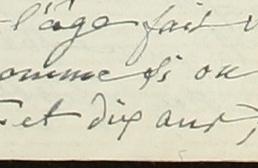 l'âge fait
omme si on
et dix ans,